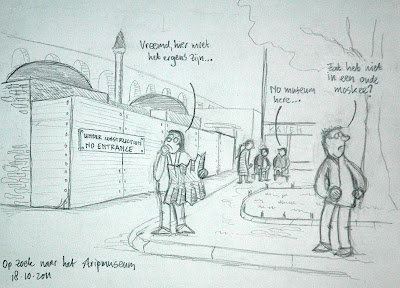 Vreemd, hier moet
het ergens zijn...
Zat het niet
in een oude
moskee?
No museum
here...
UNDER CONSTRUCTION
NO ENTRANCE
Op zoek naar het stripmuseum
18.10.2011